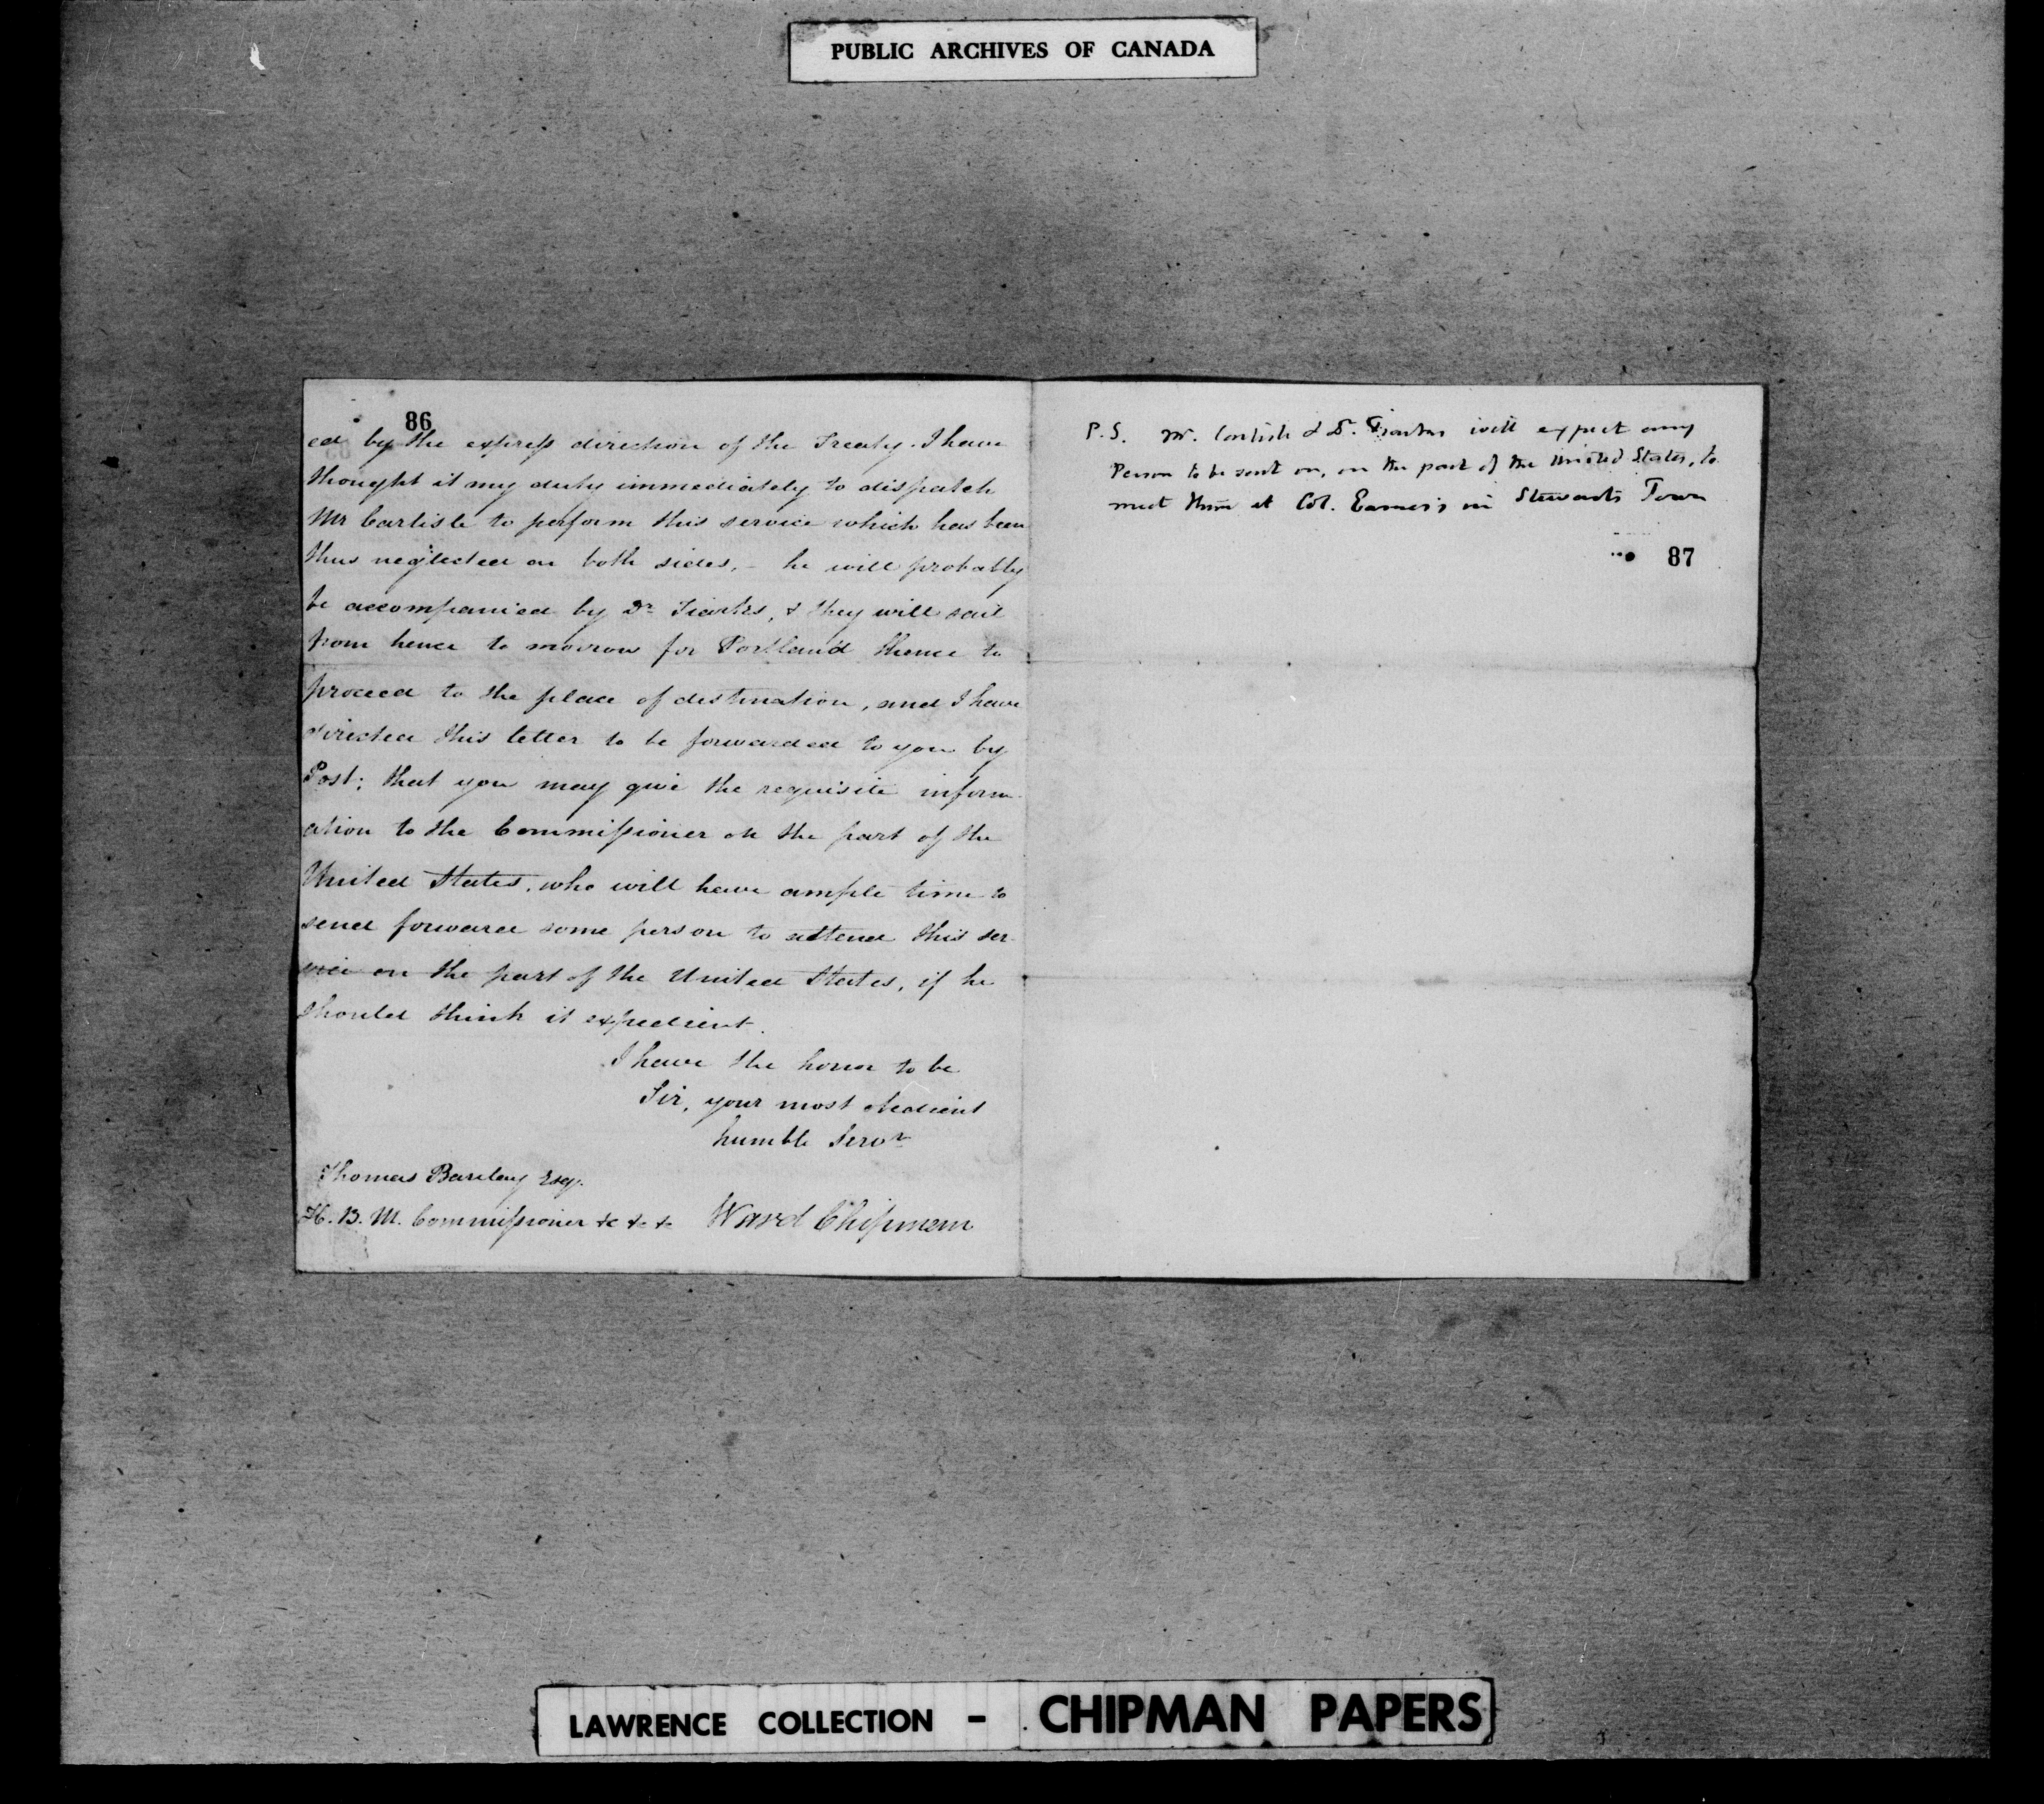 PUBLIC ARCHIVES OF CANADA
86
ed by the express direction of the Treaty. I have
thought it my duty immediately to dispatch
Mr Carlisle to perform this service which has been
thus neglected on both sides, - he will probably
be accompanied by Dr Tiarks, & they will sail
from hence to morrow for Portland thence to
proceed to the place of destination, and I have
directed this letter to be forwarded to you by
Post; that you may give the requisite inform
ation to the Commissioner on the part of the
United States, who will have ample time to
send forward some person to attend this ser
vice on the part of the United States, if he
should think it expedient.
I have the honor to be
Sir, your most obedient
humble Servt
Thomas Barclay Esq.
H. B. M. Commissioner &c &c &c Ward Chipman
P.S. Mr. Carlisle & Dr. Tiarks will expect any
Person to be sent on, on the part of the United States, to
meet them at Col. Eames's in Stewards Town
87
LAWRENCE COLLECTION - CHIPMAN PAPERS